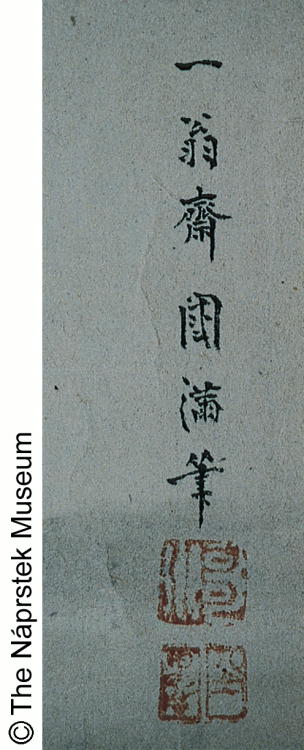 一翁齋國滿筆
© The Náprstek Museum